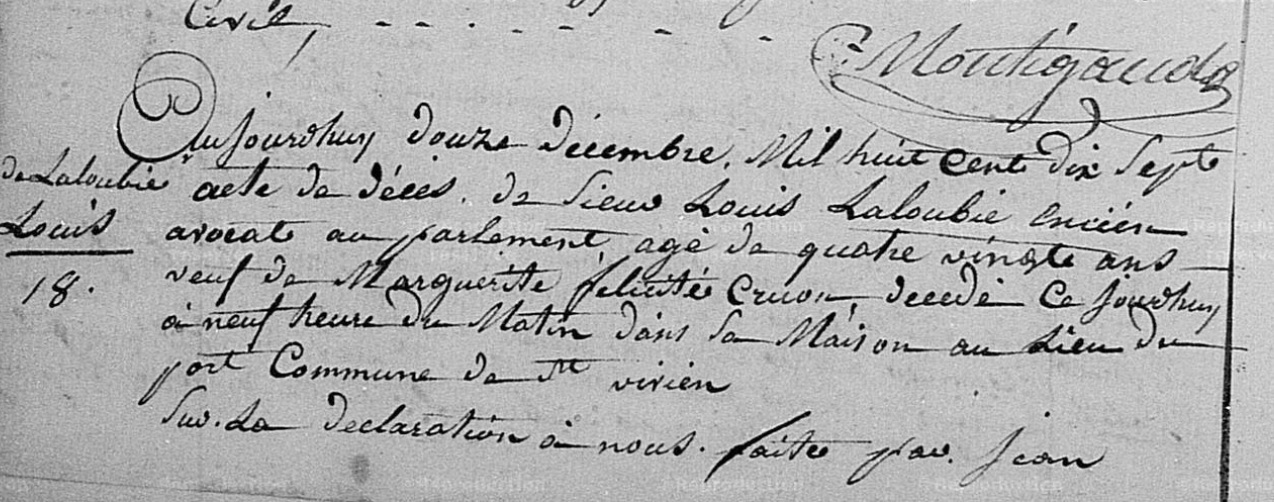 Civil,
Montigaud
Aujourdhuy douze décembre, Mil huit cent dix Sept
de Laloubie
acte de décès. de Sieur Louis Laloubie encien
Louis
avocate au parlement agé de quatre vingte ans
18.
veuf de Marguerite félicité Cruon, décédé Ce jourdhuy
à neuf heure du Matin dans sa Maison au Lieu du
port Commune de St vivien
Sur. La declaration à nous. faite par. jean